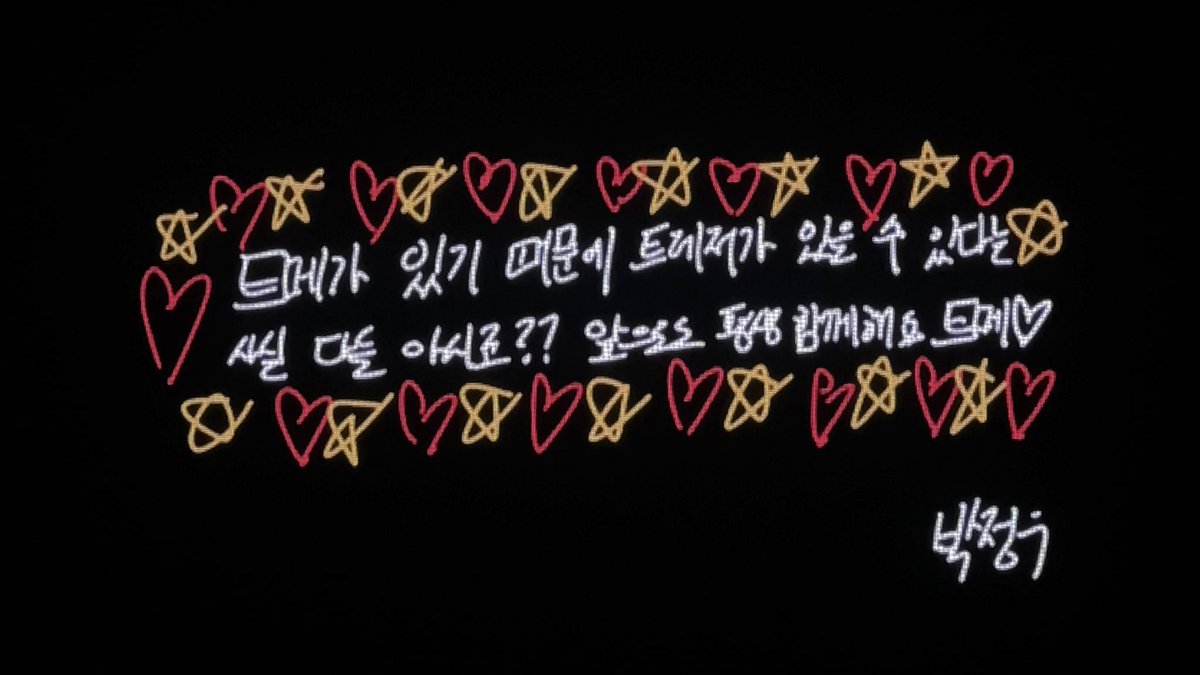 트메가 있기 때문에 트레저가 있을 수 있다는
사실 다들 아시죠?? 앞으로도 평생 함께해요 트메♡
박정우